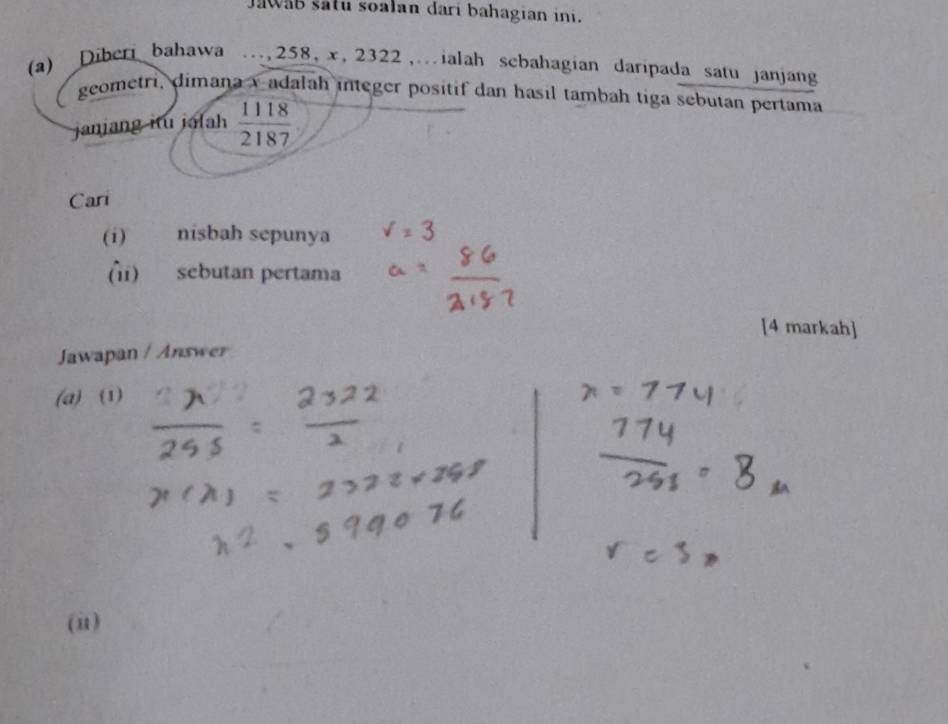 Jawab satu soalan dari bahagian ini.
(a) Diberi bahawa ...,258, x, 2322 ,... ialah sebahagian daripada satu janjang
geometri, dimana x adalah integer positif dan hasil tambah tiga sebutan pertama
janjang itu ialah 1118/2187
Cari
(i) nisbah sepunya r = 3
(ii) sebutan pertama a = 86/2187
[4 markah]
Jawapan / Answer
(a) (i) x/258 = 2322/x
x(x) = 2322 x 258
x2 = 599076
x = 774
774/258 = 3
r = 3
(ii)